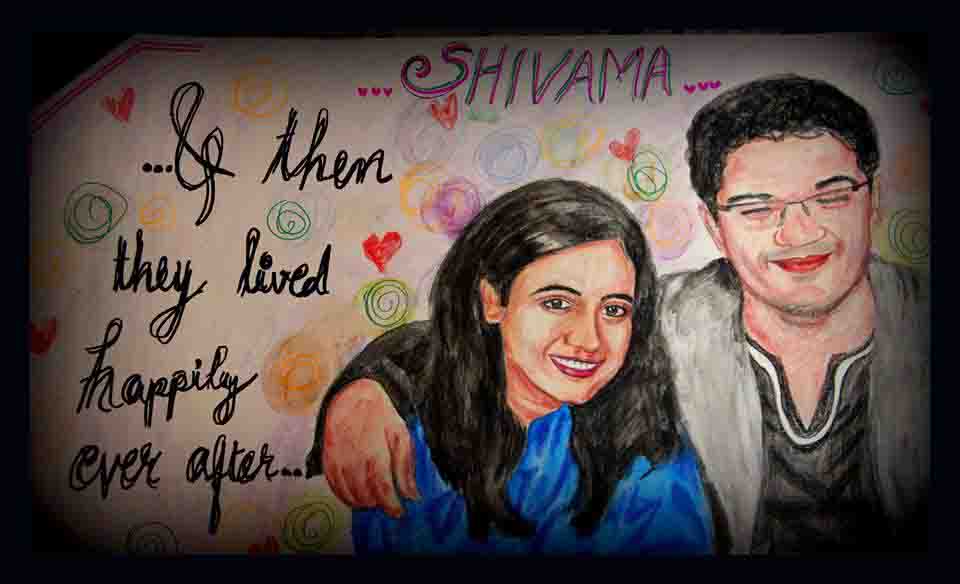 ...SHIVAMA...
...& then
they lived
happily
ever after...